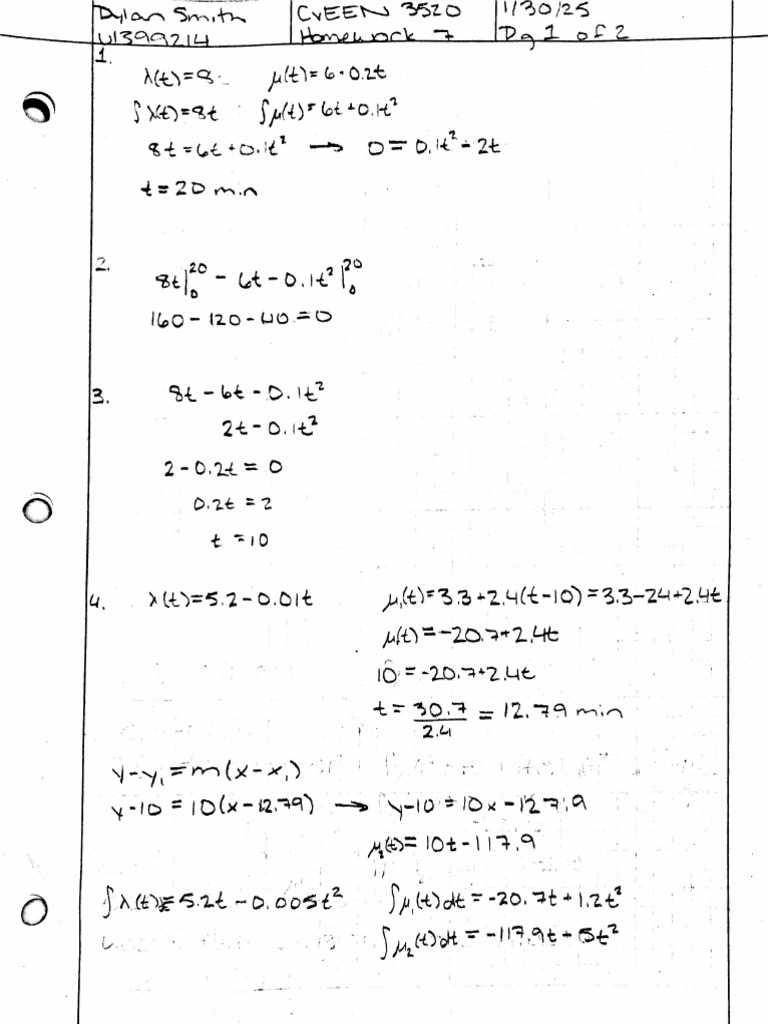 Dylan Smith CVEEN 3520 1/30/25
U1399214 Homework 7 Pg 1 of 2
1.
λ(t)=8 μ(t)=6+0.2t
∫λ(t)=8t ∫μ(t)=6t+0.1t²
8t=6t+0.1t² → 0=0.1t²-2t
t=20 min
2.
8t|₀²⁰ - 6t-0.1t²|₀²⁰
160-120-40=0
3. 8t-6t-0.1t²
2t-0.1t²
2-0.2t=0
0.2t=2
t=10
4. λ(t)=5.2-0.01t μ₁(t)=3.3+2.4(t-10)=3.3-24+2.4t
μ(t)=-20.7+2.4t
10=-20.7+2.4t
t=30.7/2.4=12.79 min
y-y₁=m(x-x₁)
y-10=10(x-12.79) → y-10=10x-127.9
μ₂(t)=10t-117.9
∫λ(t)=5.2t-0.005t² ∫μ₁(t)dt=-20.7t+1.2t²
∫μ₂(t)dt=-117.9t+5t²